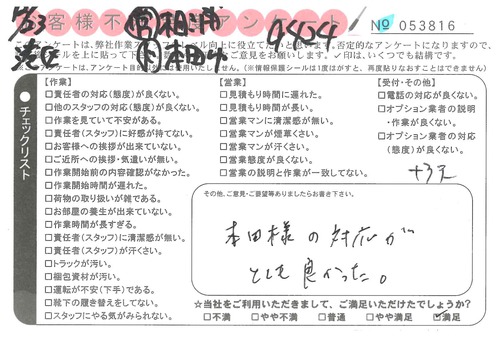 No 053816
※このアンケートは、アンケート目的以外には使用いたしません。(※情報保護シールは1度はがすと、再度貼りなおすことはできません)
チェックリスト
【作業】
□責任者の対応(態度)が良くない。
□他のスタッフの対応(態度)が良くない。
□作業を見ていて不安がある。
□責任者(スタッフ)に好感が持てない。
□お客様への挨拶が出来ていない。
□ご近所への挨拶・気遣いが無い。
□作業開始前の内容確認がなかった。
□作業開始時間が遅れた。
□荷物の取り扱いが雑である。
□お部屋の養生が出来ていない。
□作業時間が長すぎる。
□責任者(スタッフ)に清潔感が無い。
□責任者(スタッフ)が汗くさい。
□トラックが汚い。
□梱包資材が汚い。
□運転が不安(下手)である。
□靴下の履き替えをしてない。
□スタッフにやる気がみられない。
【営業】
□見積もり時間に遅れた。
□見積もり時間が長い。
□営業マンに清潔感が無い。
□営業マンが煙草くさい。
□営業マンが汗くさい。
□営業態度が良くない。
□営業の説明と作業が一致してない。
【受付・その他】
□電話の対応が良くない。
□オプション業者の説明
・作業が良くない。
□オプション業者の対応
(態度)が良くない。
その他、ご意見・ご要望等ありましたらお書き下さい。
本田様の対応が
とても良かった。
☆当社をご利用いただきまして、ご満足いただけたでしょうか?
□不満 □やや不満 □普通 □やや満足 ☑満足